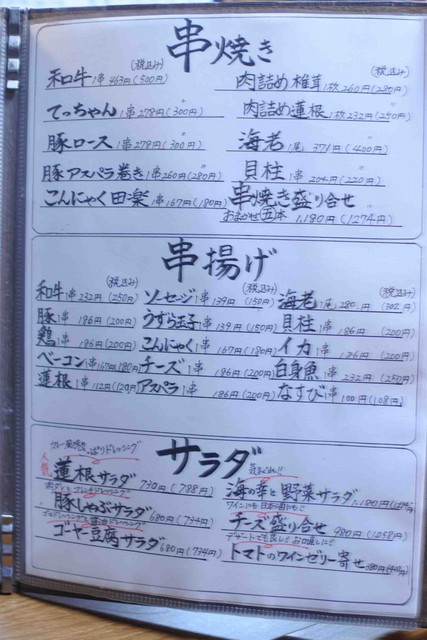 串焼き
(税込み)
和牛 1串 463円(500円)
てっちゃん 1串 278円(300円)
豚ロース 1串 278円(300円)
豚アスパラ巻き 1串 260円(280円)
こんにゃく田楽 1串 167円(180円)
(税込み)
肉詰め椎茸 1枚 260円(280円)
肉詰め蓮根 1枚 232円(250円)
海老 1尾 371円(400円)
貝柱 1串 204円(220円)
串焼き盛り合せ
おまかせ(五)本 1,180円(1274円)
串揚げ
(税込み)
和牛 1串 232円(250円)
豚 1串 186円(200円)
鶏 1串 186円(200円)
ベーコン 1串 167円(180円)
蓮根 1串 112円(120円)
(税込み)
ソーセージ 1串 139円(150円)
うずら玉子 1串 139円(150円)
こんにゃく 1串 167円(180円)
チーズ 1串 186円(200円)
アスパラ 1串 186円(200円)
(税込み)
海老 1尾 280円(302円)
貝柱 1串 186円(200円)
イカ 1串 186円(200円)
白身魚 1串 232円(250円)
なすび 1串 100円(108円)
サラダ
人気
蓮根サラダ 730円(788円)
豚しゃぶサラダ 680円(734円)
ゴーヤー豆腐サラダ 680円(734円)
海の幸と野菜サラダ
ワインにも日本酒にも
チーズ盛り合せ 980円(1058円)
デザートでも良し!! お口直しに!!
トマトのワインゼリー寄せ